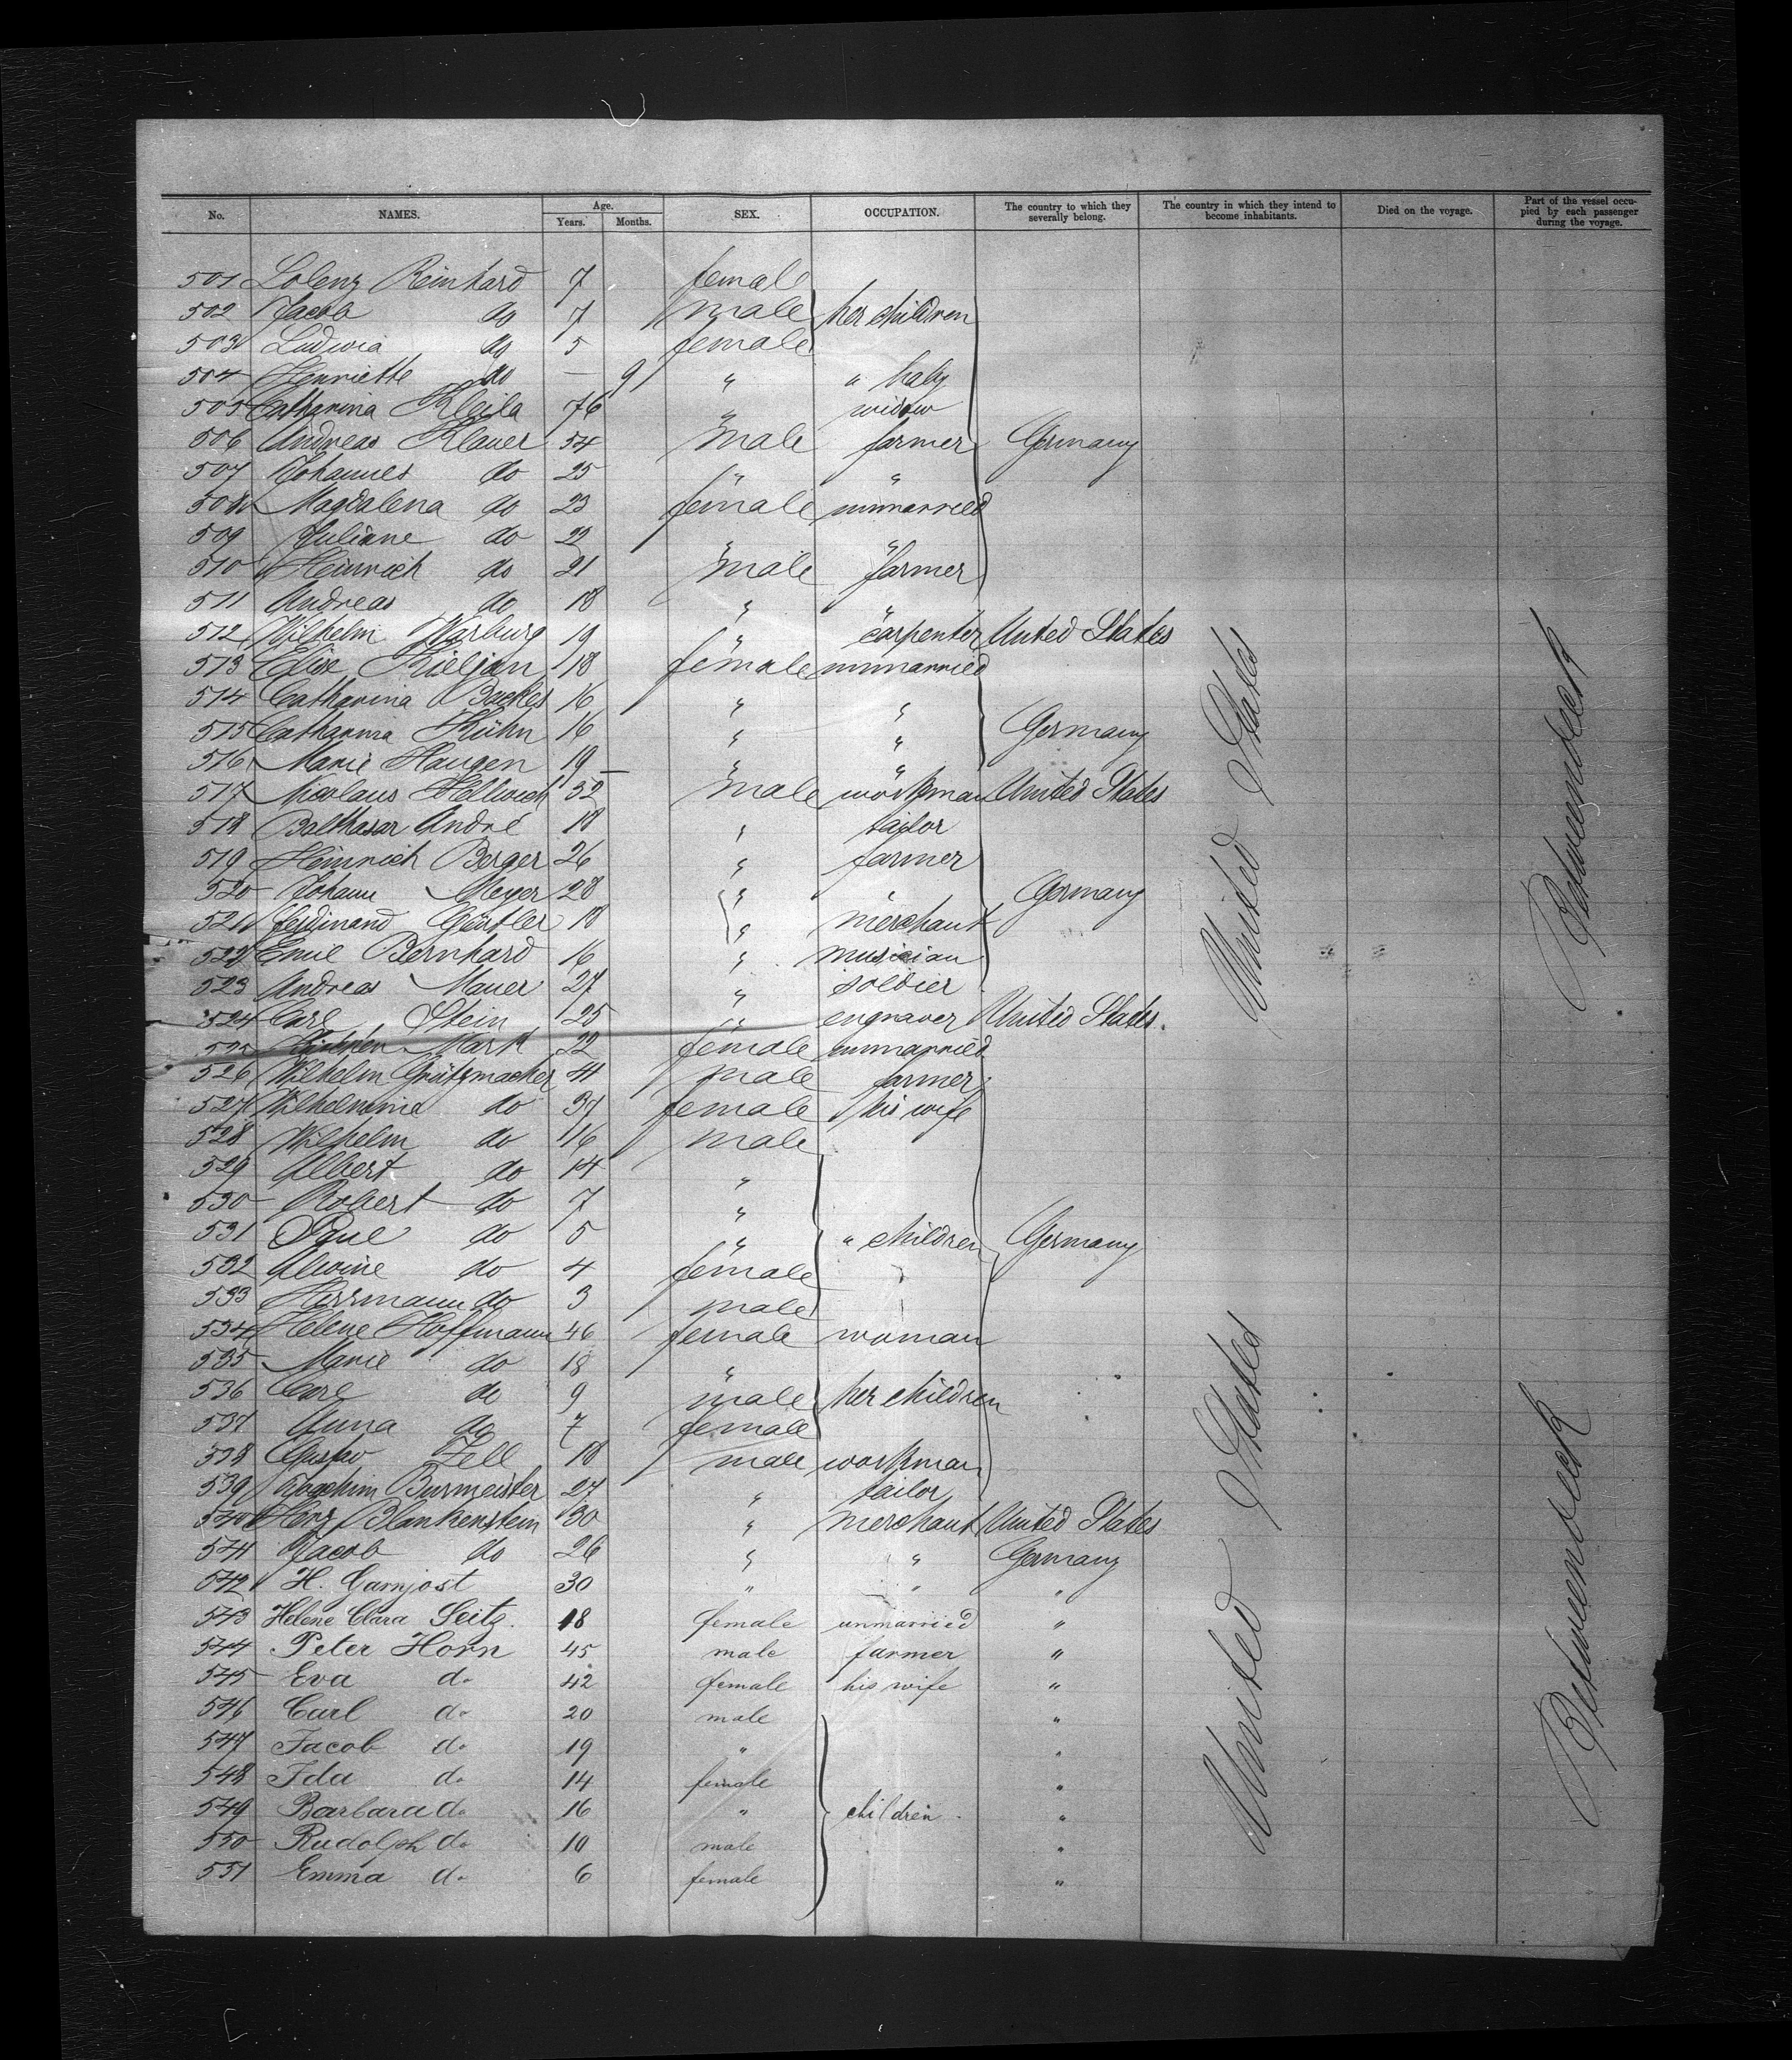 No. NAMES. Age. Years. Months. SEX. OCCUPATION. The country to which they severally belong. The country in which they intend to become inhabitants. Died on the voyage. Part of the vessel occupied by each passenger during the voyage.
501 Lolenz Reinhard 7 female
502 Jacob do 7 male her children
503 Ludwia do 5 female
504 Henriette do — 9 " " baby
505 Catharina Kleila 76 " widow
506 Andreas Klauer 54 male farmer Germany
507 Johannes do 25 " "
508 Magdalena do 23 female unmarried
509 Juliane do 22 " "
510 Heinrich do 21 male farmer
511 Andreas do 18 " "
512 Wilhelm Warburg 19 " carpenter United States
513 Elise Kieljan 18 female unmarried
514 Catharina Backes 16 " "
515 Catharina Kühn 16 " " Germany
516 Marie Haugen 19 " "
517 Nicolaus Hellwich 32 male workman United States
518 Balthasar André 18 " tailor
519 Heinrich Berger 26 " farmer
520 Johann Meyer 28 " " Germany
521 Ferdinand Gürtler 18 " merchant
522 Emil Bernhard 16 " musician
523 Andreas Mauer 27 " soldier
524 Carl Stein 25 " engraver United States.
525 Mark 22 female unmarried
526 Wilhelm Grützmacher 41 male farmer
527 Wilhelmine do 37 female his wife
528 Wilhelm do 16 male
529 Albert do 14 "
530 Robert do 7 "
531 Paul do 5 " " children Germany
532 Alwine do 4 female
533 Herrmann do 3 male
534 Helene Hoffmann 46 female woman
535 Marie do 18 "
536 Carl do 9 male her children
537 Anna do 7 female
538 Gustav Zell 18 male workman
539 Joachim Burmeister 27 " tailor
540 Herz Blankenstein 30 " merchant United States
541 Jacob do 26 " " Germany
542 H. Garnjost 30 " " "
543 Helene Clara Seitz. 18 female unmarried "
544 Peter Horn 45 male farmer "
545 Eva do 42 female his wife "
546 Carl do 20 male "
547 Jacob do 19 " "
548 Ida do 14 female "
549 Barbara do 16 " children. "
550 Rudolph do 10 male "
551 Emma do 6 female "
United States
United States
Betweendeck
Betweendeck